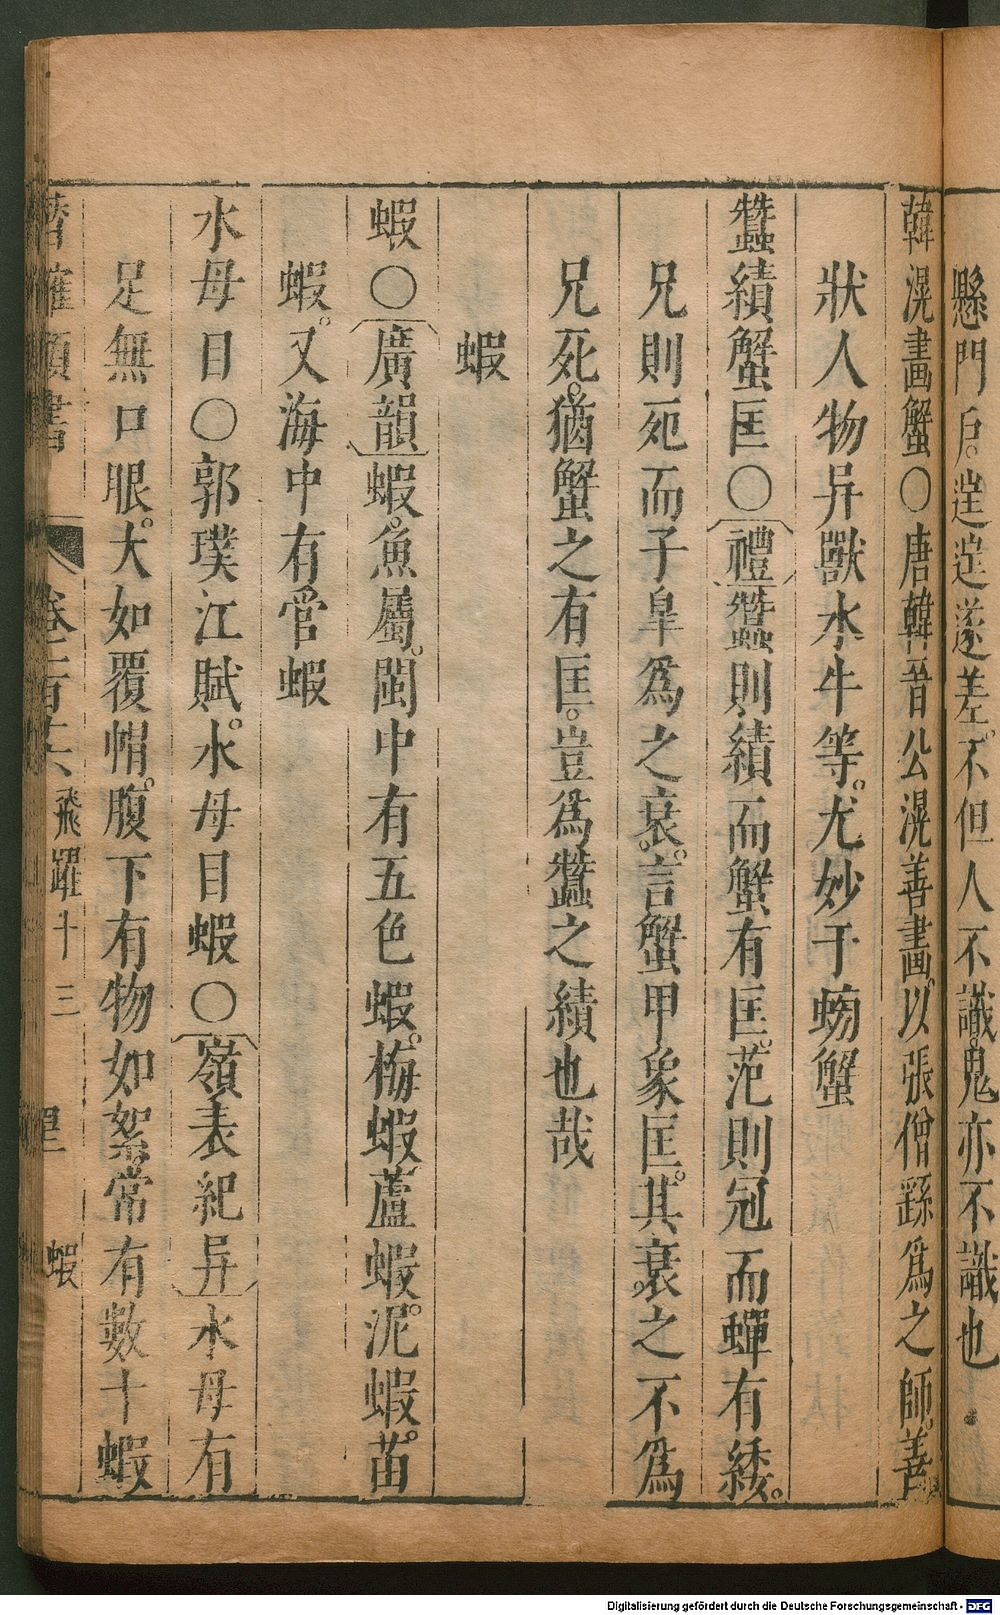 懸門戶。逞逞遂差。不但人不識。鬼亦不識也
韓滉畫蟹○唐韓晉公滉善畫。以張僧繇爲之師。善
狀人物异獸水牛等。尤妙于螃蟹
蠶績蟹匡○禮蠶則績而蟹有匡。范則冠而蟬有緌。
兄則死而子臯爲之衰。言蟹甲象匡。其衰之不爲
兄死。猶蟹之有匡。豈爲蠶之績也哉
蝦
蝦○廣韻蝦。魚屬。閩中有五色蝦。梅蝦蘆蝦泥。蝦。苗
蝦。又海中有官蝦
水母目○郭璞江賦。水母目蝦○嶺表紀异水母有
足無口眼。大如覆帽。腹下有物如絮常有數十蝦
潛確類書 卷一百十八 飛躍十三 蝦
Digitalisierung gefördert durch die Deutsche Forschungsgemeinschaft - DFG